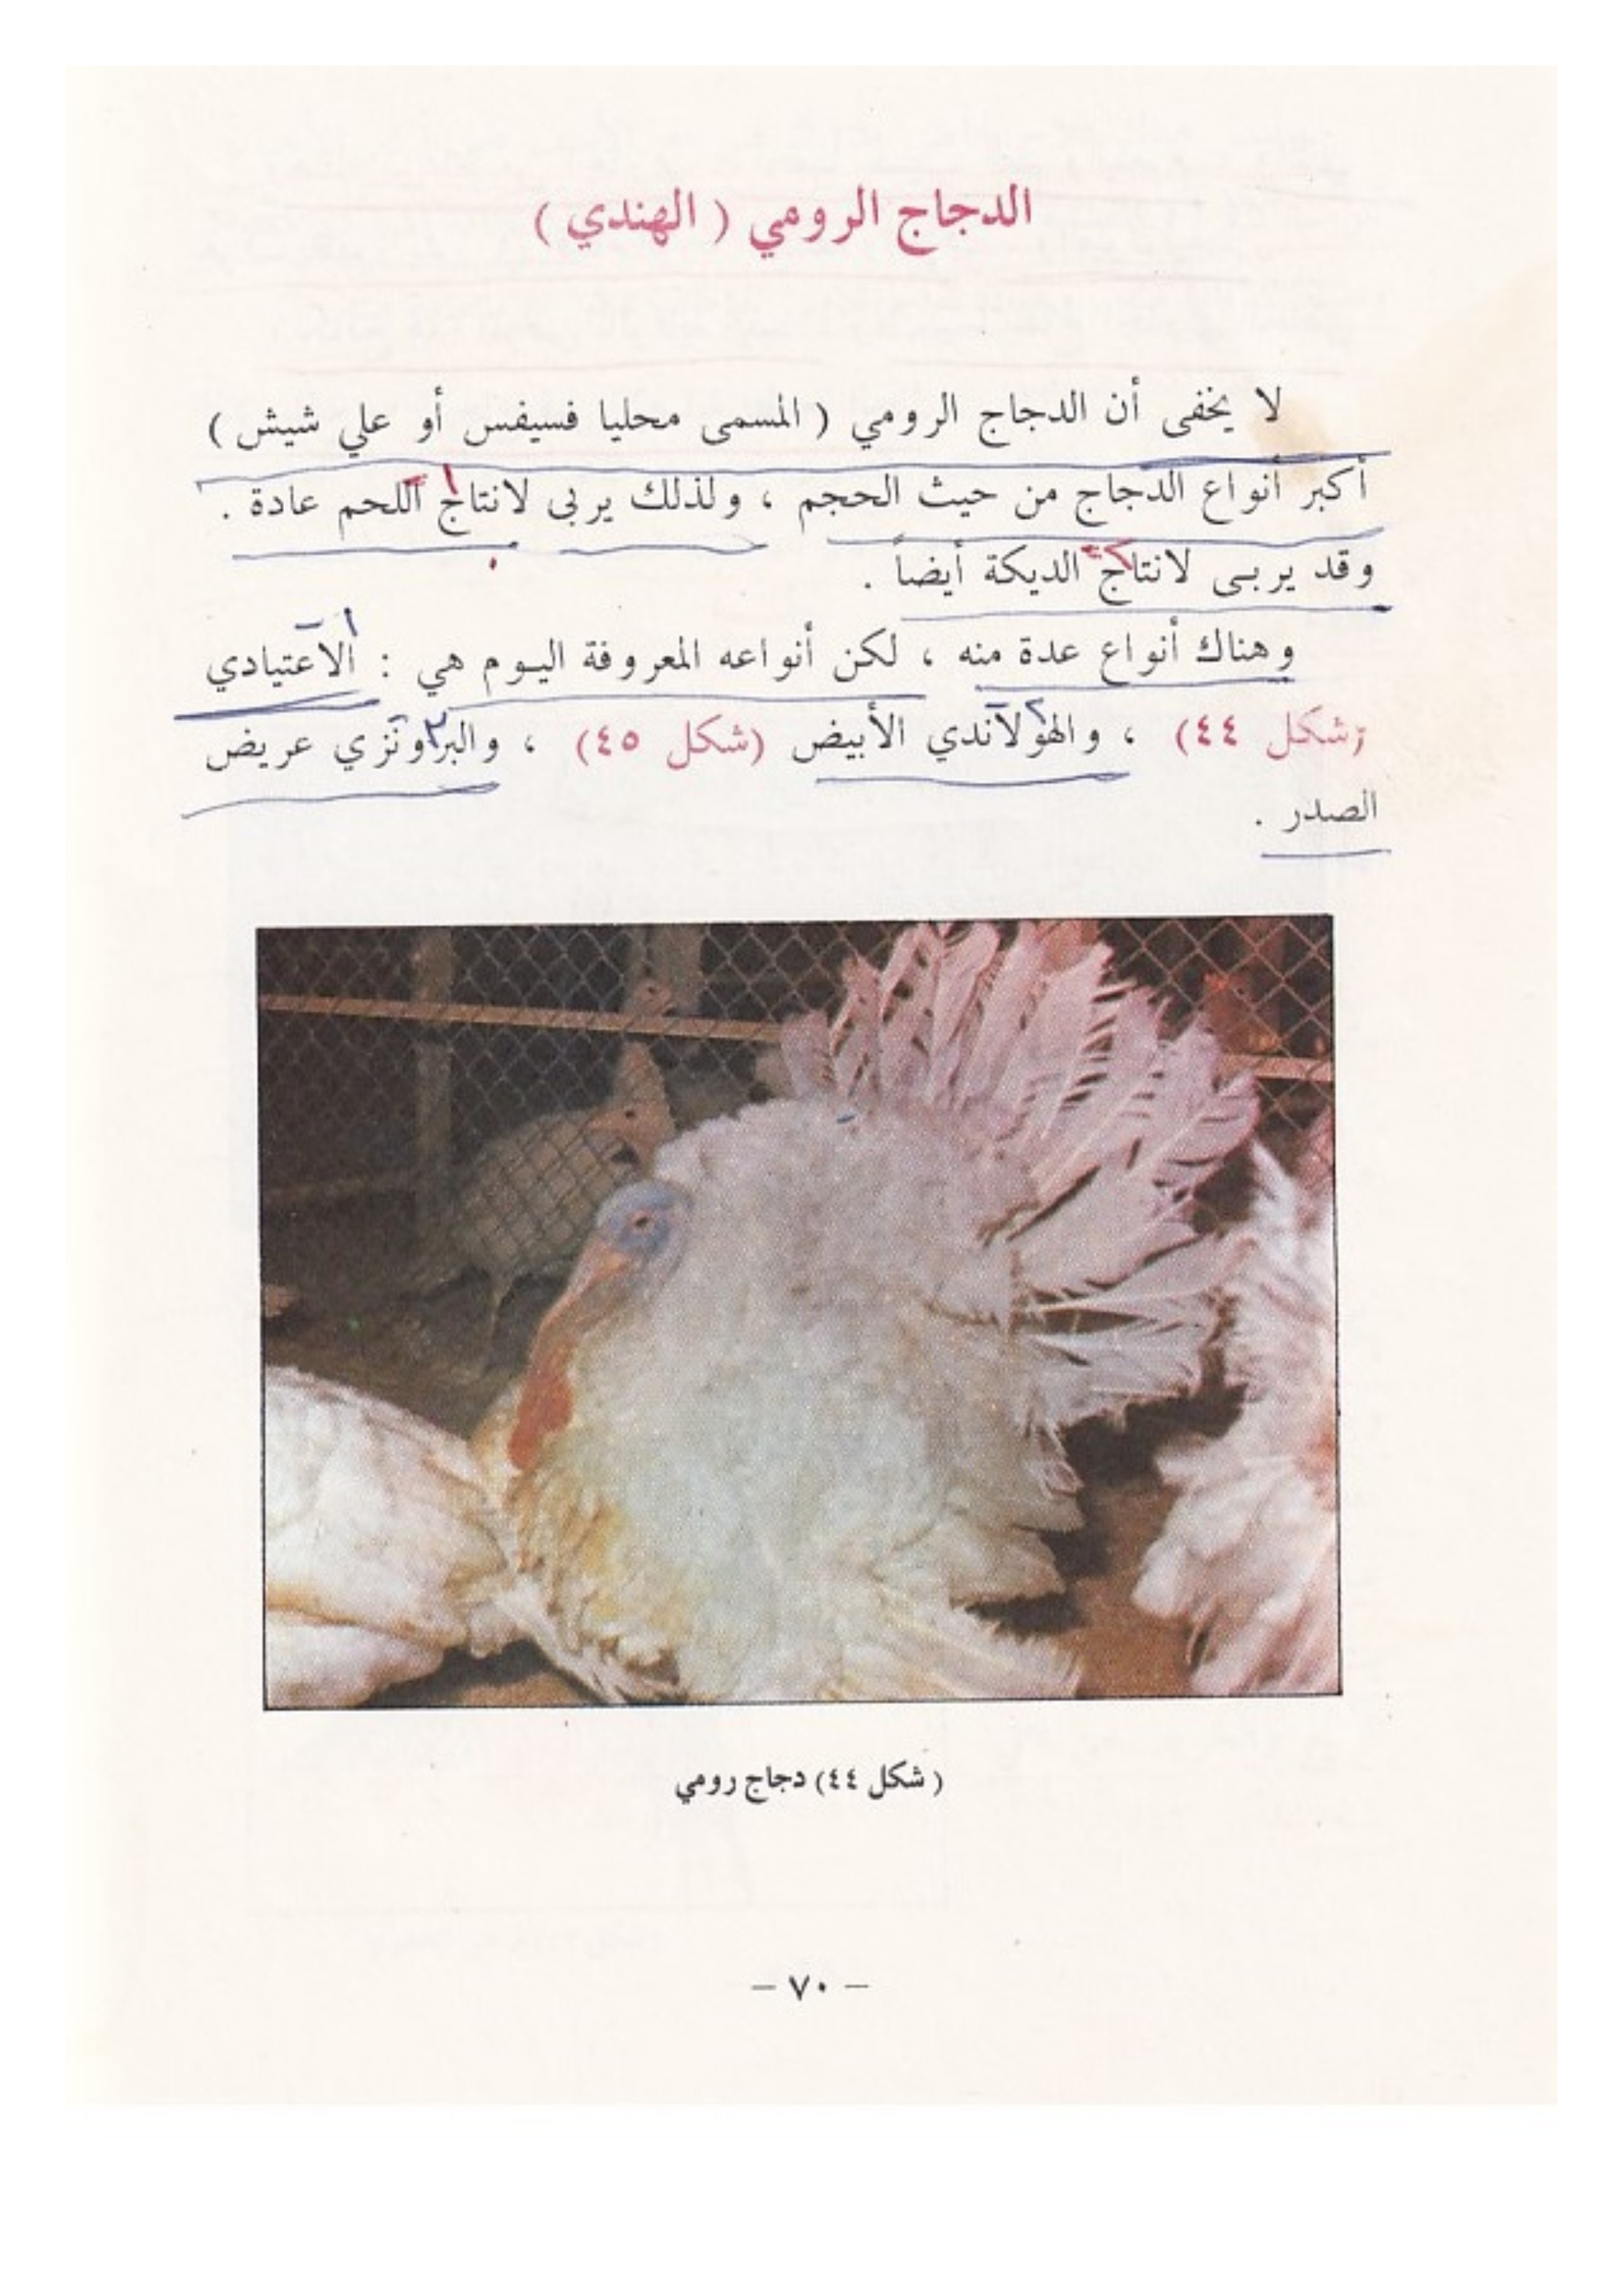 الدجاج الرومي ( الهندي )
لا يخفى أن الدجاج الرومي ( المسمى محليا فسيفس أو علي شيش )
أكبر أنواع الدجاج من حيث الحجم ، ولذلك يربى لانتاج اللحم عادة .
وقد يربى لانتاج الديكة أيضاً .
وهناك أنواع عدة منه ، لكن أنواعه المعروفة اليوم هي : الاعتيادي
(شكل ٤٤) ، والهولاندي الأبيض (شكل ٤٥) ، والبراونزي عريض
الصدر .
( شكل ٤٤) دجاج رومي
– ٧٠ –